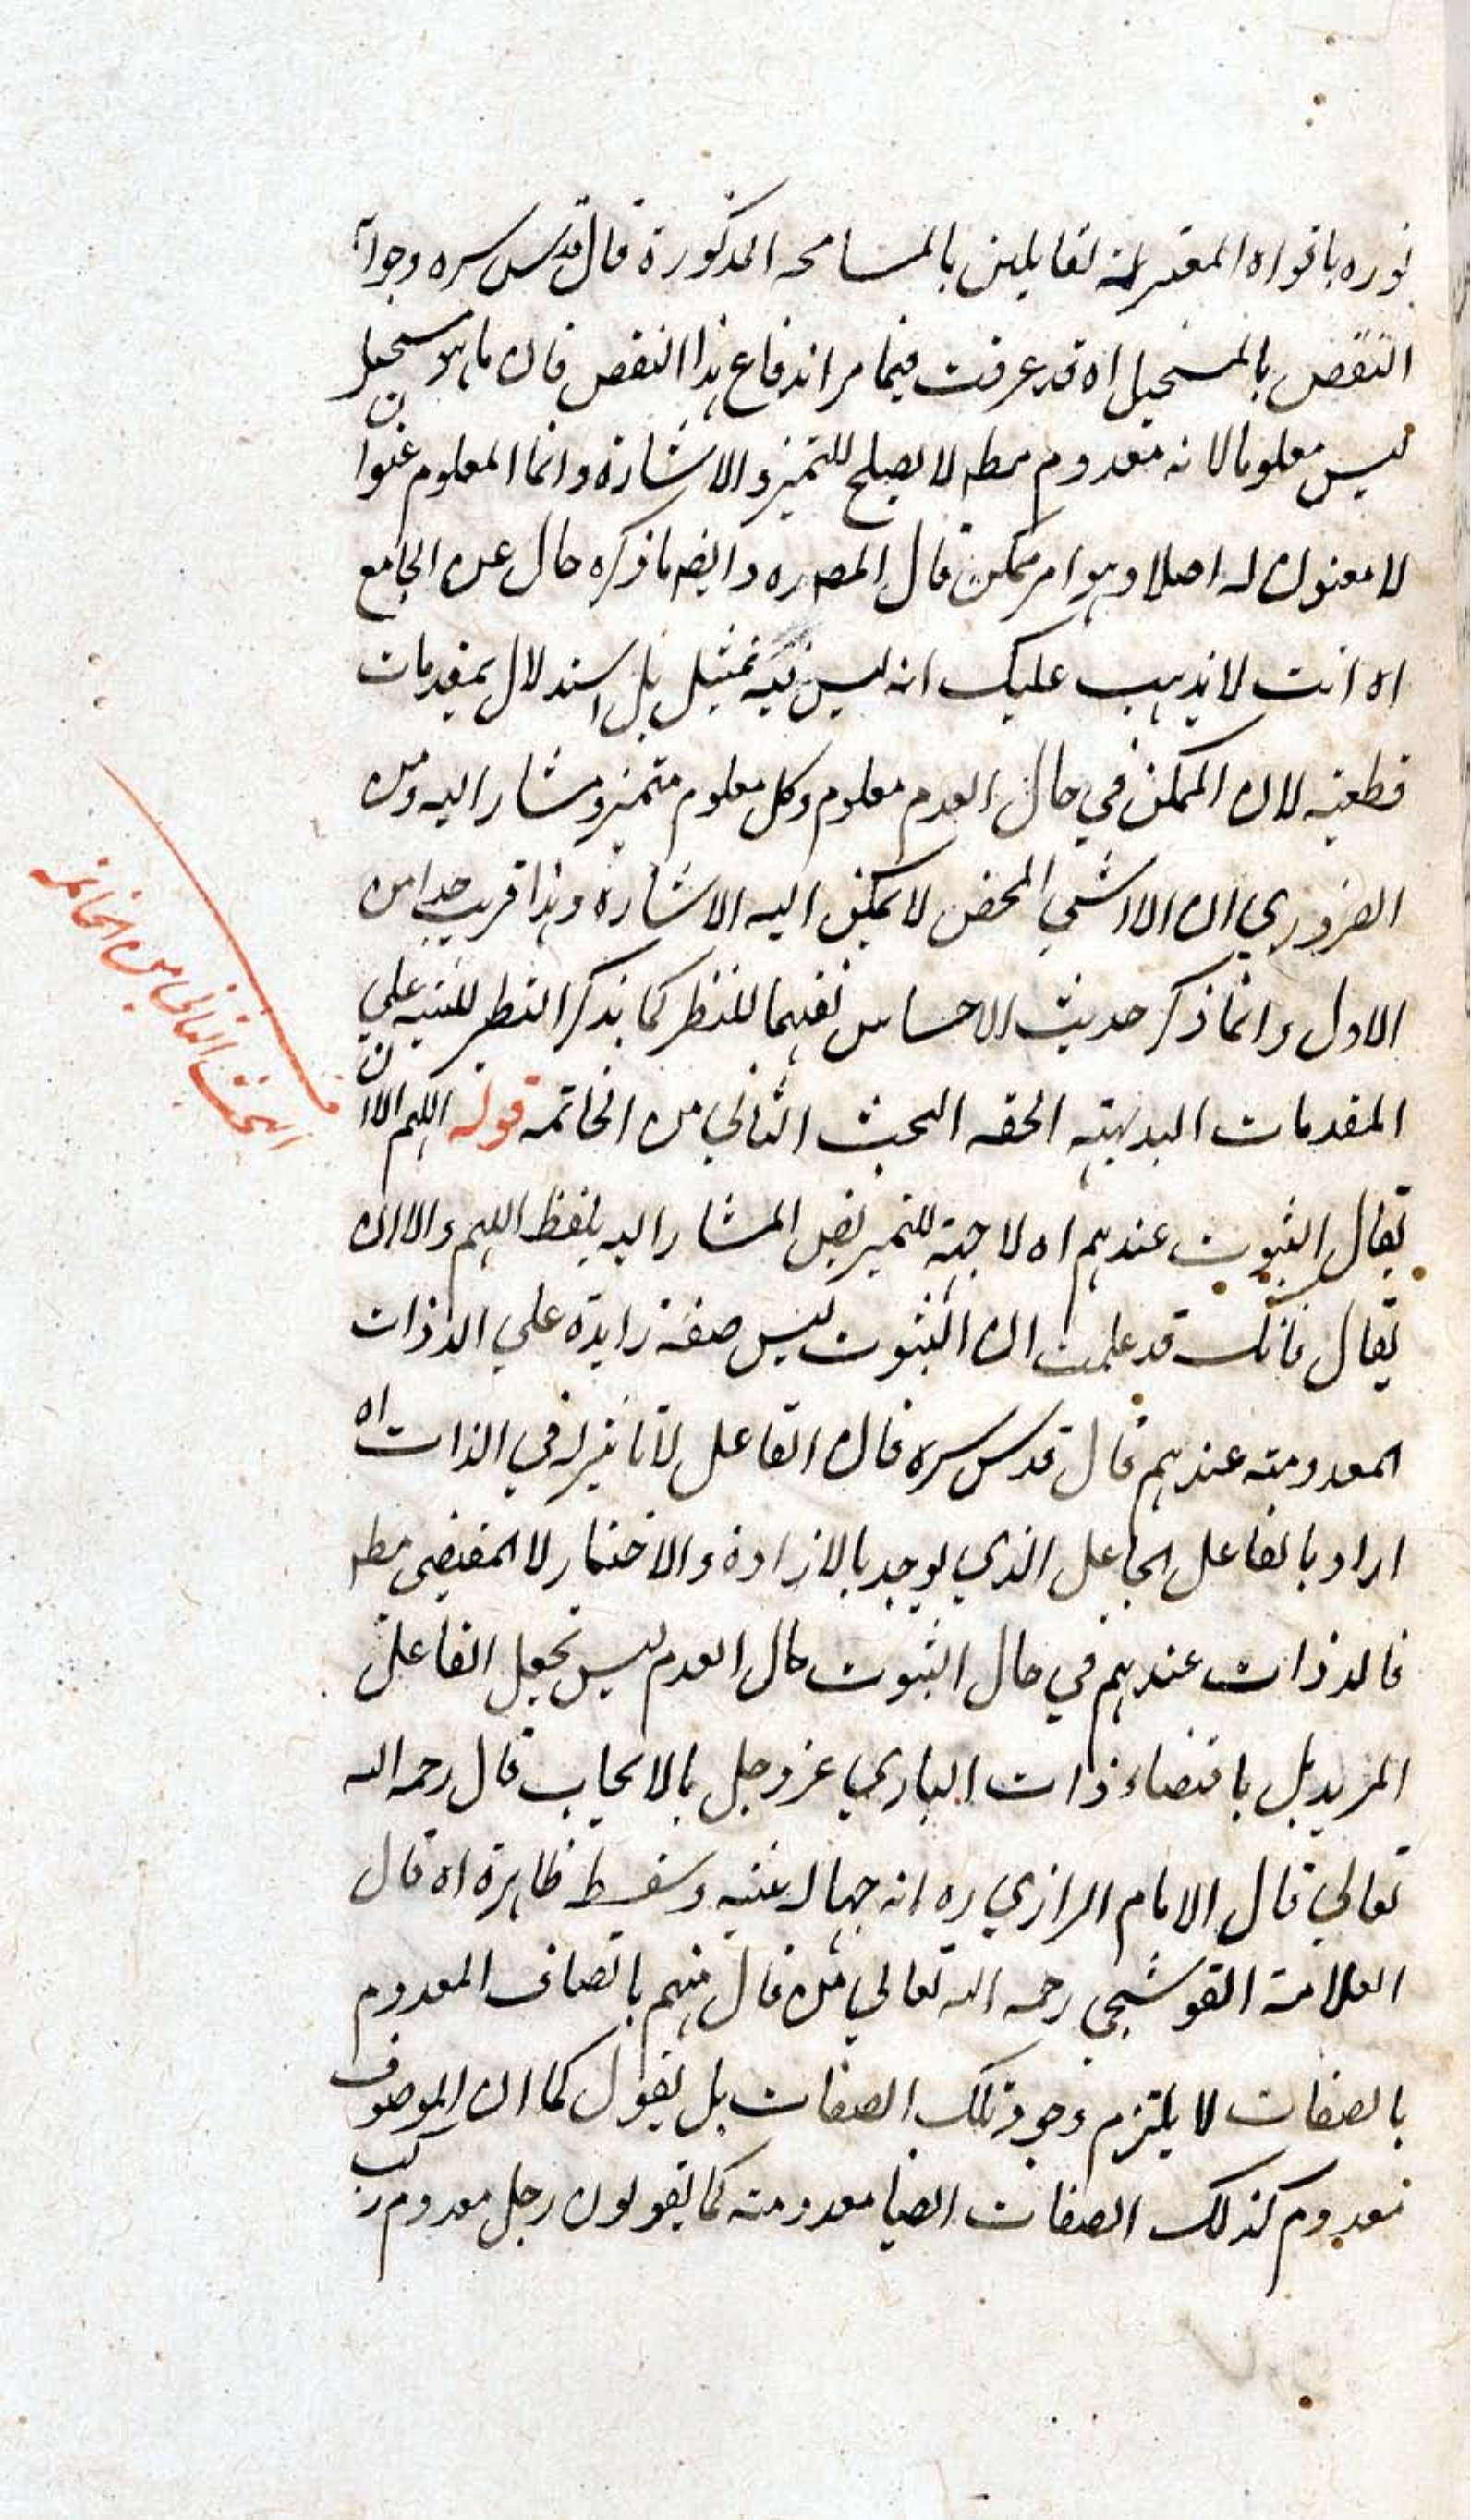 نوره بافواه المعتزلة لقايلين بالمسامحه المذكورة قال قدس سره وجوابه
النقض بالمستحيل اه قد عرفت فيما مر اندفاع هذا النقض فان ما هو مستحيل
ليس معلوما لانه معدوم مطه لا يصلح للتميز والاشارة وانما المعلوم عنوان
لا معنون له اصلا وهو امر ممكن قال المصه ره وايضه ما ذكره خال عن الجامع
اه انت لا يذهب عليك انه ليس فيه تمثيل بل استدلال بمقدمات
قطعيه لان الممكن في حال العدم معلوم وكل معلوم متميز ومشار اليه ومن
الضروري ان اللاشي المحض لا يمكن اليه الاشارة وهذا قريب جدا من
الاول وانما ذكر حديث الاحساس تفهيما للنظر كما يذكر النظير للتنبيه علي
المقدمات البديهية الحقه البحث الثاني من الخاتمه قوله اللهم الا ان
يقال الثبوت عندهم اه لا جهة للتمريض المشار اليه بلفظ اللهم والا ان
يقال فانك قد علمت ان الثبوت ليس صفة زايدة علي الذوات
المعدومة عندهم قال قدس سره فان الفاعل لا تاثير له في الذات اه
اراد بالفاعل الجاعل الذي يوجد بالارادة والاختيار لا المقتضي مطه
فالذوات عندهم في حال الثبوت حال العدم ليس بجعل الفاعل
المريد بل باقتضاء ذات الباري عز وجل بالايجاب قال رحمه الله
تعالي قال الامام الرازي ره انه جهالة بينه وسفسطه ظاهرة اه قال
العلامة القوشجي رحمه الله تعالي من قال منهم باتصاف المعدوم
بالصفات لا يلتزم وجود تلك الصفات بل يقول كما ان الموصوف
معدوم كذلك الصفات ايضا معدومة كما يقولون رجل معدوم راكب
البحث الثاني من الخاتمه